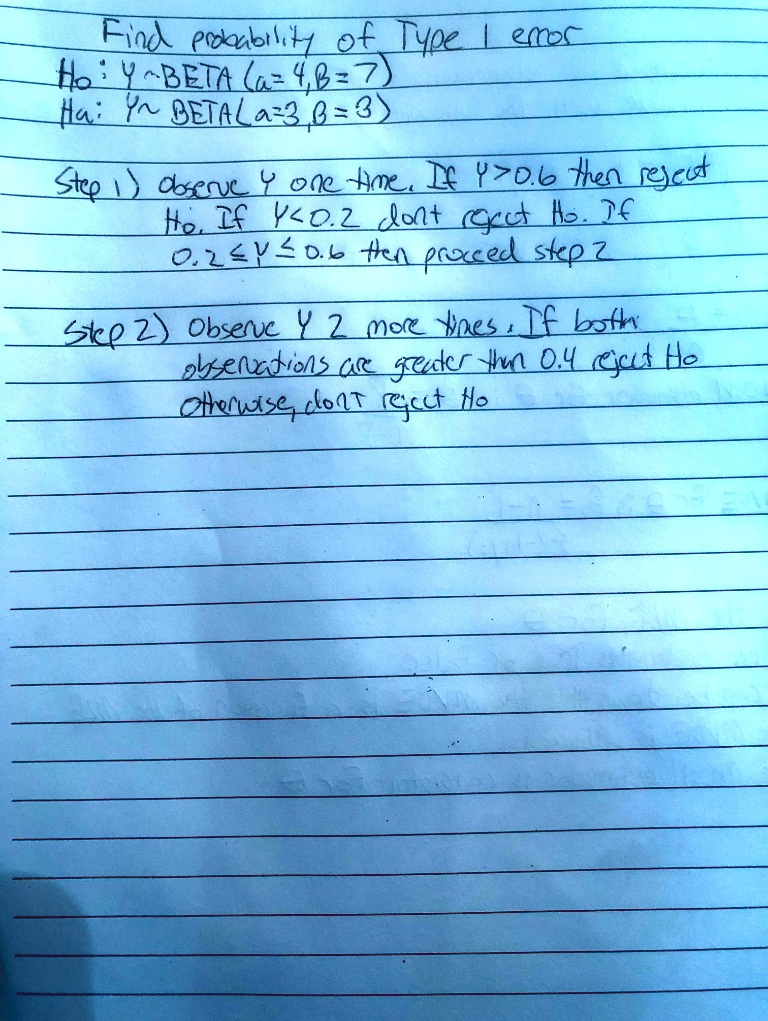 Find probability of Type 1 error
Ho: Y~BETA (a=4, B=7)
Ha: Y~ BETA(a=3, B=3)
Step 1) observe Y one time. If Y>0.6 then reject
Ho. If Y<0.2 dont reject Ho. If
0.2≤Y≤0.6 then proceed step 2
Step 2) Observe Y 2 more times. If both
observations are greater than 0.4 reject Ho
otherwise, dont reject Ho